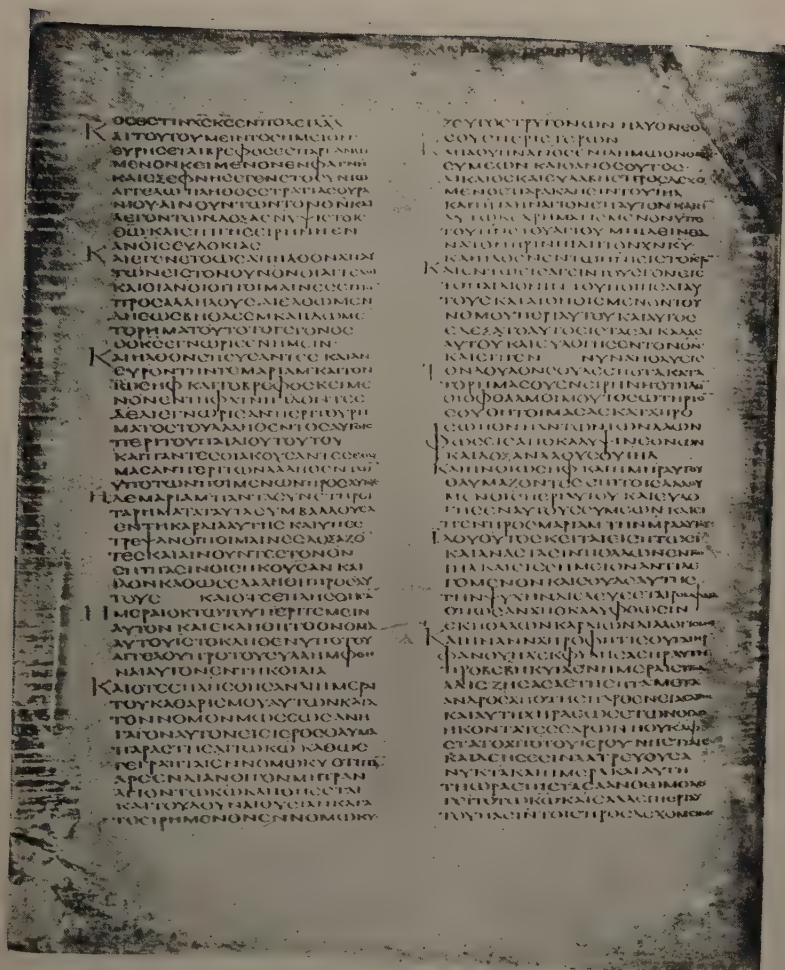 ΟϹΕϹΤΙΝΧϹΚϹΕΝΠΟΛΕΙΔΑΔ
ΚΑΙΤΟΥΤΟΥΜΕΙΝΤΟϹΗΜΕΙΟΝ
ΕΥΡΗϹΕΤΑΙΒΡΕΦΟϹΕϹΠΑΡΓΑΝΩ
ΜΕΝΟΝΚΕΙΜΕΝΟΝΕΝΦΑΤΝΗ
ΚΑΙΕΞΕΦΝΗϹΕΓΕΝΕΤΟϹΥΝΤΩ
ΑΓΓΕΛΩΠΛΗΘΟϹϹΤΡΑΤΙΑϹΟΥΡΑ
ΝΙΟΥΑΙΝΟΥΝΤΩΝΤΟΝΘΝΚΑΙ
ΛΕΓΟΝΤΩΝΔΟΞΑΕΝΥΨΙϹΤΟΙϹ
ΘΩΚΑΙΕΠΙΓΗϹΕΙΡΗΝΗΕΝ
ΑΝΟΙϹΕΥΔΟΚΙΑϹ
ΚΑΙΕΓΕΝΕΤΟΩϹΑΠΗΛΘΟΝΑΠΑΥ
ΤΩΝΕΙϹΤΟΝΟΥΝΟΝΟΙΑΓΓΕΛΟΙ
ΚΑΙΟΙΑΝΟΙΟΙΠΟΙΜΑΙΝΕϹΕΙΠΟ
ΠΡΟϹΑΛΛΗΛΟΥϹΔΙΕΛΘΩΜΕΝ
ΔΗΕΩϹΒΗΘΛΕΕΜΚΑΙΙΔΩΜΕ
ΤΟΡΗΜΑΤΟΥΤΟΤΟΓΕΓΟΝΟϹ
ΟΟΚϹΕΓΝΩΡΙϹΕΝΗΜΕΙΝ
ΚΑΙΗΛΘΟΝϹΠΕΥϹΑΝΤΕϹΚΑΙΑΝ
ΕΥΡΟΝΤΗΝΤΕΜΑΡΙΑΜΚΑΙΤΟΝ
ΙΩϹΗΦΚΑΙΤΟΒΡΕΦΟϹΚΕΙΜΕ
ΝΟΝΕΝΤΗΦΑΤΝΗΙΔΟΝΤΕϹ
ΔΕΔΙΕΓΝΩΡΙϹΑΝΠΕΡΙΤΟΥΡΗ
ΜΑΤΟϹΤΟΥΛΑΛΗΘΕΝΤΟϹΑΥΤΟΙϹ
ΠΕΡΙΤΟΥΠΑΙΔΙΟΥΤΟΥΤΟΥ
ΚΑΙΠΑΝΤΕϹΟΙΑΚΟΥϹΑΝΤΕϹΕΘΑΥ
ΜΑϹΑΝΠΕΡΙΤΩΝΛΑΛΗΘΕΝΤΩ
ΥΠΟΤΩΝΠΟΙΜΕΝΩΝΠΡΟϹΑΥΤΟΥϹ
ΗΔΕΜΑΡΙΑΜΠΑΝΤΑϹΥΝΕΤΗΡΕΙ
ΤΑΡΗΜΑΤΑΤΑΥΤΑϹΥΜΒΑΛΛΟΥϹΑ
ΕΝΤΗΚΑΡΔΙΑΑΥΤΗϹΚΑΙΥΠΕϹ
ΤΡΕΨΑΝΟΙΠΟΙΜΑΙΝΕϹΔΟΞΑΖΟ
ΤΕϹΚΑΙΑΙΝΟΥΝΤΕϹΤΟΝΘΝ
ΕΠΙΠΑϹΙΝΟΙϹΗΚΟΥϹΑΝΚΑΙ
ΙΔΟΝΚΑΘΩϹΕΛΑΛΗΘΗΠΡΟϹΑΥ
ΤΟΥϹ ΚΑΙΟΤΕΕΠΛΗϹΘΗϹΑ
ΗΜΕΡΑΙΟΚΤΩΤΟΥΠΕΡΙΤΕΜΕΙΝ
ΑΥΤΟΝΚΑΙΕΚΛΗΘΗΤΟΟΝΟΜΑ
ΑΥΤΟΥΙϹΤΟΚΛΗΘΕΝΥΠΟΤΟΥ
ΑΓΓΕΛΟΥΠΡΟΤΟΥϹΥΛΛΗΜΦΘΗ
ΝΑΙΑΥΤΟΝΕΝΤΗΚΟΙΛΙΑ
ΚΑΙΟΤΕΕΠΛΗϹΘΗϹΑΝΑΙΗΜΕΡΑΙ
ΤΟΥΚΑΘΑΡΙϹΜΟΥΑΥΤΩΝΚΑΤΑ
ΤΟΝΝΟΜΟΝΜΩϹΕΩϹΑΝΗ
ΓΑΓΟΝΑΥΤΟΝΕΙϹΙΕΡΟϹΟΛΥΜΑ
ΠΑΡΑϹΤΗϹΑΙΤΩΚΩΚΑΘΩϹ
ΓΕΓΡΑΠΤΑΙΕΝΝΟΜΩΚΥΟΤΙΠΑ
ΑΡϹΕΝΔΙΑΝΟΙΓΟΝΜΗΤΡΑΝ
ΑΓΙΟΝΤΩΚΩΚΛΗΘΗϹΕΤΑΙ
ΚΑΙΤΟΥΔΟΥΝΑΙΘΥϹΙΑΝΚΑΤΑ
ΤΟΕΙΡΗΜΕΝΟΝΕΝΝΟΜΩΚΥ
ΖΕΥΓΟϹΤΡΥΓΟΝΩΝΗΔΥΟΝΕΟϹ
ϹΟΥϹΠΕΡΙϹΤΕΡΩΝ
ϹΥΜΕΩΝΚΑΙΟΑΝΟϹΟΥΤΟϹ
ΔΙΚΑΙΟϹΚΑΙΕΥΛΑΒΗϹΠΡΟϹΔΕΧΟ
ΜΕΝΟϹΠΑΡΑΚΛΗϹΙΝΤΟΥΙΗΛ
ΚΑΙΠΝΑΗΝΑΓΙΟΝΕΠΑΥΤΟΝΚΑΙΗ
ΑΥΤΩΚΕΧΡΗΜΑΤΙϹΜΕΝΟΝΥΠΟ
ΤΟΥΠΝϹΤΟΥΑΓΙΟΥΜΗΙΔΕΙΝΘΑ
ΝΑΤΟΝΠΡΙΝΗΙΔΗΤΟΝΧΝΚΥ
ΚΑΙΗΛΘΕΝΕΝΤΩΠΝΙΕΙϹΤΟΙΕΡ
ΚΑΙΕΝΤΩΕΙϹΑΓΕΙΝΤΟΥϹΓΟΝΕΙϹ
ΤΟΠΑΙΔΙΟΝΙΝΤΟΥΠΟΙΗϹΑΙΑΥ
ΤΟΥϹΚΑΤΑΤΟΕΙΘΙϹΜΕΝΟΝΤΟΥ
ΝΟΜΟΥΠΕΡΙΑΥΤΟΥΚΑΙΑΥΤΟϹ
ΕΔΕΞΑΤΟΑΥΤΟΕΙϹΤΑϹΑΓΚΑΛΑϹ
ΑΥΤΟΥΚΑΙΕΥΛΟΓΗϹΕΝΤΟΝΘΝ
ΚΑΙΕΙΠΕΝ ΝΥΝΑΠΟΛΥΕΙϹ
ΤΟΝΔΟΥΛΟΝϹΟΥΔΕϹΠΟΤΑΚΑΤΑ
ΤΟΡΗΜΑϹΟΥΕΝΕΙΡΗΝΗΟΤΙΙΔΟ
ΟΙΟΦΘΑΛΜΟΙΜΟΥΤΟϹΩΤΗΡΙΟ
ϹΟΥΟΗΤΟΙΜΑϹΑϹΚΑΤΑΠΡΟ
ϹΩΠΟΝΠΑΝΤΩΝΤΩΝΛΑΩΝ
ΦΩϹΕΙϹΑΠΟΚΑΛΥΨΙΝΕΘΝΩΝ
ΚΑΙΔΟΞΑΝΛΑΟΥϹΟΥΙΗΛ
ΚΑΙΗΝΙΩϹΗΦΚΑΙΗΜΗΡΑΥΤΟΥ
ΘΑΥΜΑΖΟΝΤΕϹΕΠΙΤΟΙϹΛΑΛΟΥ
ΜΕΝΟΙϹΠΕΡΙΑΥΤΟΥΚΑΙΕΥΛΟ
ΓΗϹΕΝΑΥΤΟΥϹϹΥΜΕΩΝΚΑΙΕΙ
ΠΕΝΠΡΟϹΜΑΡΙΑΜΤΗΝΜΡΑΑΥΤΟΥ
ΙΔΟΥΟΥΤΟϹΚΕΙΤΑΙΕΙϹΠΤΩϹΙ
ΚΑΙΑΝΑϹΤΑϹΙΝΠΟΛΛΩΝΕΝΤΩ
ΙΗΛΚΑΙΕΙϹϹΗΜΕΙΟΝΑΝΤΙΛΕ
ΓΟΜΕΝΟΝΚΑΙϹΟΥΔΕΑΥΤΗϹ
ΤΗΝΨΥΧΗΝΔΙΕΛΕΥϹΕΤΑΙΡΟΜΦΑΙΑ
ΟΠΩϹΑΝΑΠΟΚΑΛΥΦΘΩϹΙΝ
ΕΚΠΟΛΛΩΝΚΑΡΔΙΩΝΔΙΑΛΟΓΙϹΜΟΙ
ΚΑΙΗΝΑΝΝΑΠΡΟΦΗΤΙϹΘΥΓΑΤΗΡ
ΦΑΝΟΥΗΛΕΚΦΥΛΗϹΑϹΗΡΑΥΤΗ
ΠΡΟΒΕΒΗΚΥΙΑΕΝΗΜΕΡΑΙϹΠΟΛ
ΛΑΙϹΖΗϹΑϹΑΕΤΗΕΠΤΑΜΕΤΑ
ΑΝΔΡΟϹΑΠΟΤΗϹΠΑΡΘΕΝΕΙΑϹΑΥΤΗϹ
ΚΑΙΑΥΤΗΧΗΡΑΕΩϹΕΤΩΝΟΓΔΟ
ΗΚΟΝΤΑΤΕϹϹΑΡΩΝΗΟΥΚΑΦΙ
ϹΤΑΤΟΑΠΟΤΟΥΙΕΡΟΥΝΗϹΤΙΑΙϹ
ΚΑΙΔΕΗϹΕϹΙΝΛΑΤΡΕΥΟΥϹΑ
ΝΥΚΤΑΚΑΙΗΜΕΡΑΚΑΙΑΥΤΗ
ΤΗΩΡΑΕΠΙϹΤΑϹΑΑΝΘΩΜΟΛΟ
ΓΕΙΤΟΤΩΚΩΚΑΙΕΛΑΛΕΙΠΕΡΙΑΥ
ΤΟΥΠΑϹΙΝΤΟΙϹΠΡΟϹΔΕΧΟΜΕ